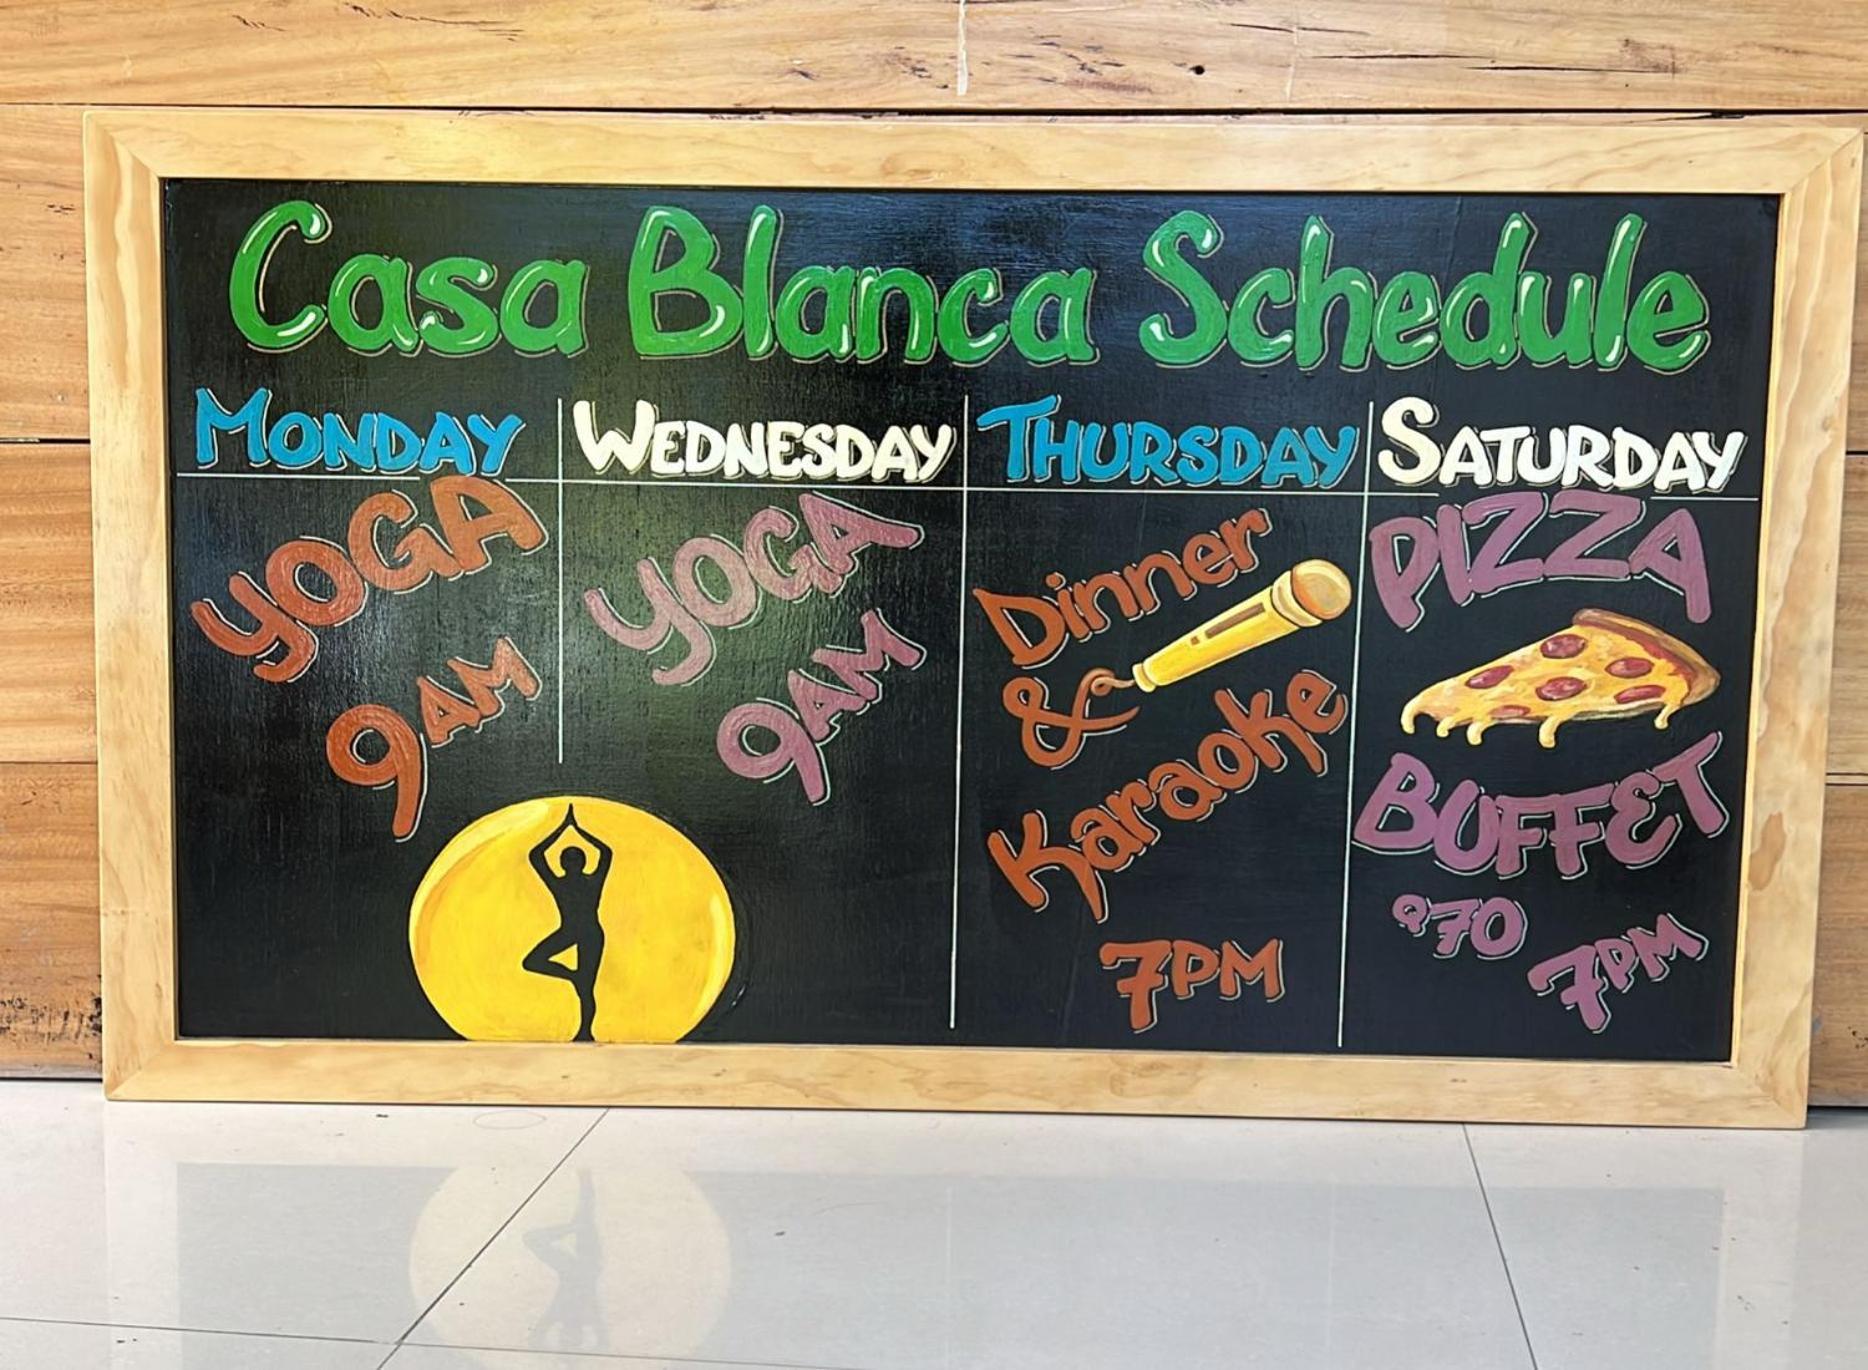 Casa Blanca Schedule
MONDAY
WEDNESDAY
THURSDAY
SATURDAY
YOGA
9AM
YOGA
9AM
Dinner
&
Karaoke
7PM
PIZZA
BUFFET
Q70
7PM